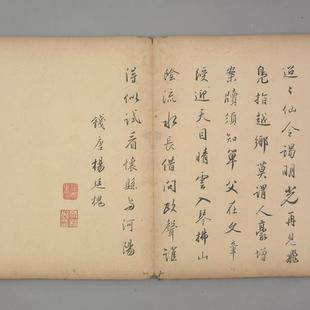 迢々仙令謁明光再見飛
鳧指越鄉莫謂人豪增
案牘須知單父在文章
綬迎天目晴雲入琴拂山
陰流水長借問政聲誰
得似試看懷縣與河陽
錢唐楊廷槐